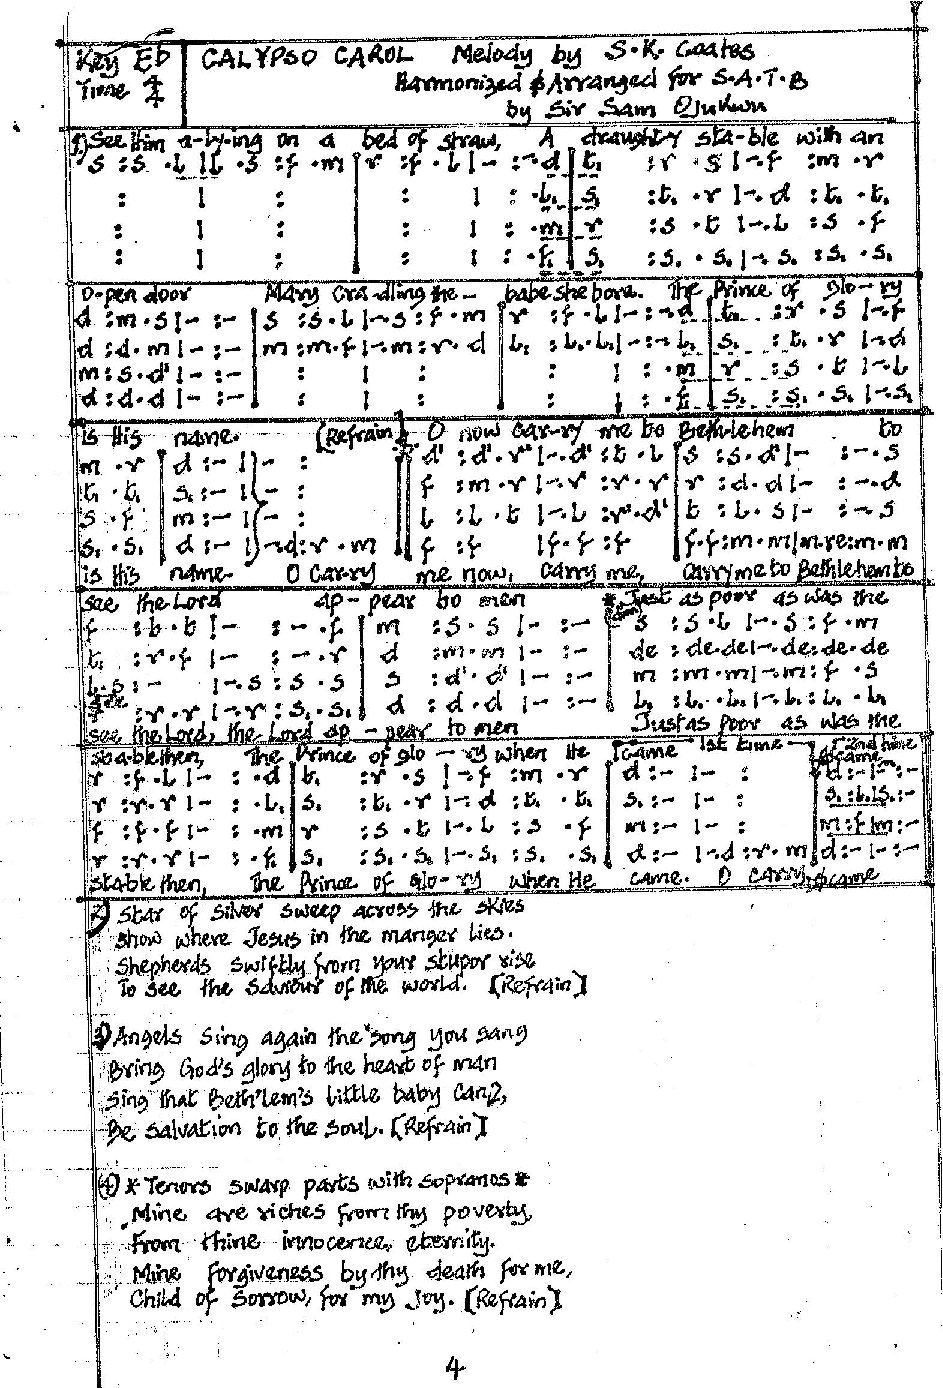 Key Eb CALYPSO CAROL Melody by S.K. Coates
Time 4/4 Harmonized & Arranged for S.A.T.B
by Sir Sam Ojukwu
1) See Him a-ly-ing on a bed of straw, A draughty sta-ble with an
s :s .l | l .s :f .m | r :f .l | - :-.d | t, :r .s | -.f :m .r
: | : | : | : .l, | s, :t, .r | -.d :t, .t,
: | : | : | : .m | r :s .t | -.l :s .f
: | : | : | : .f, | s, :s, .s, | -.s, :s, .s,
O-pen door Mary Cra-dling the - babe she bore. The Prince of glo-ry
d :m .s | - :- | s :s .l | -.s :f .m | r :f .l | - :-.d | t, :r .s | -.f
d :d .m | - :- | m :m .f | -.m :r .d | l, :l, .l, | - :-.l, | s, :t, .r | -.d
m :s .d' | - :- | : | : | : | : .m | r :s .t | -.l
d :d .d | - :- | : | : | : | : .f, | s, :s, .s, | -.s,
is His name. [Refrain] O now Car-ry me to Bethlehem to
m .r | d :- | - : | d' :d' .r' | -.d' :t .l | s :s .d' | - :-.s
t, .t, | s, :- | - : | f :m .r | -.r :r .r | r :d .d | - :-.d
s .f | m :- | - : | l :l .t | -.l :r' .d' | t :l .s | - :-.s
s, .s, | d :- | -.d :r .m | f :f | f .f :f | f .f :m .m | m .re :m .m
is His name. O Car-ry me now, carry me, carry me to Bethlehem to
see the Lord ap-pear to men Just as poor as was the
f :t .t | - :-.f | m :s .s | - :- | s :s .l | -.s :f .m
t, :r .f | - :-.r | d :m .m | - :- | de :de .de | -.de :de .de
l .s :- | -.s :s .s | s :d' .d' | - :- | m :m .m | -.m :f .s
:r .r | -.r :s, .s, | d :d .d | - :- | l, :l, .l, | -.l, :l, .l,
see the Lord, the Lord ap-pear to men Just as poor as was the
stable then, The Prince of glo-ry when He came 1st time 2nd time came
r :f .l | - : .d | t, :r .s | -.f :m .r | d :- | - : | d :- | - :-
r :r .r | - : .l, | s, :t, .r | -.d :t, .t, | s, :- | - : | s, :l, | s, :-
f :f .f | - : .m | r :s .t | -.l :s .f | m :- | - : | m :f | m :-
r :r .r | - : .f, | s, :s, .s, | -.s, :s, .s, | d :- | -.d :r .m | d :- | - :-
stable then, The Prince of glo-ry when He came. O Carry, came
2) Star of silver sweep across the skies
Show where Jesus in the manger lies.
Shepherds swiftly from your stupor rise
To see the Saviour of the world. [Refrain]
3) Angels sing again the song you sang
Bring God's glory to the heart of man
Sing that Beth'lem's little baby can,
Be salvation to the soul. [Refrain]
4) * Tenors swarp parts with sopranos *
Mine are riches from thy poverty,
From thine innocence, eternity.
Mine forgiveness by thy death for me,
Child of Sorrow, for my Joy. [Refrain]
4